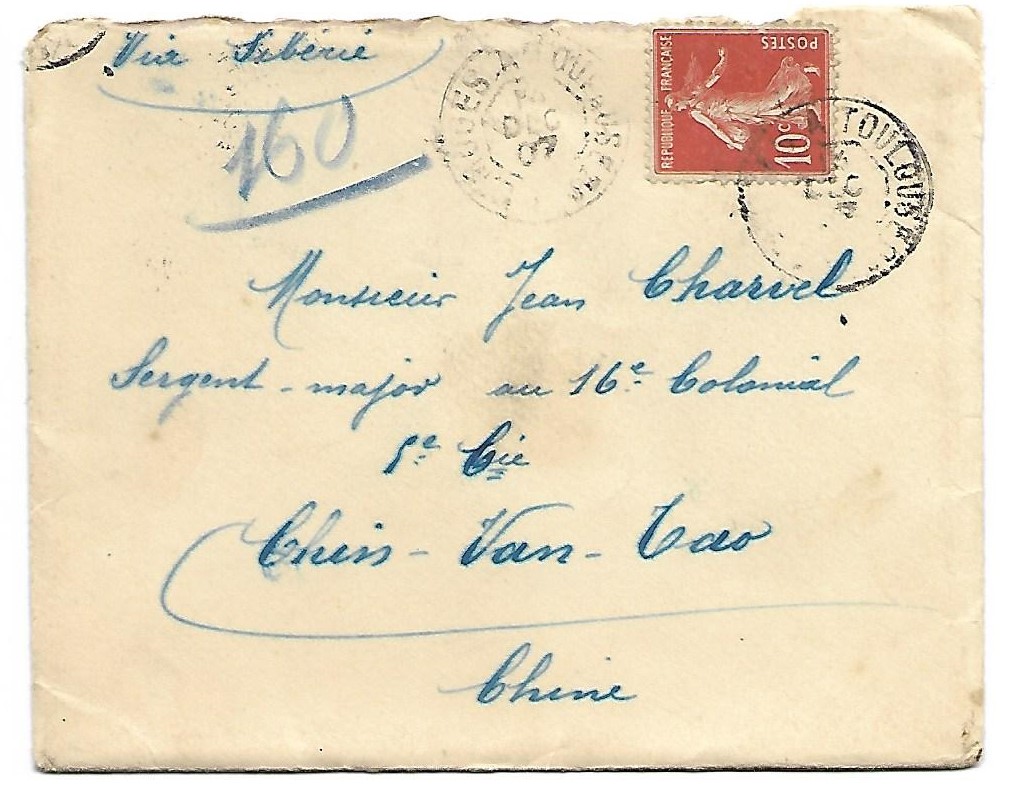 Via Sibérie
160
REPUBLIQUE FRANÇAISE
POSTES
10c
A TOULOUSE
DEC
07
A TOULOUSE
Monsieur Jean Charvel
Sergent-major au 16e Colonial
5e Cie
Chin-Van-Tao
Chine